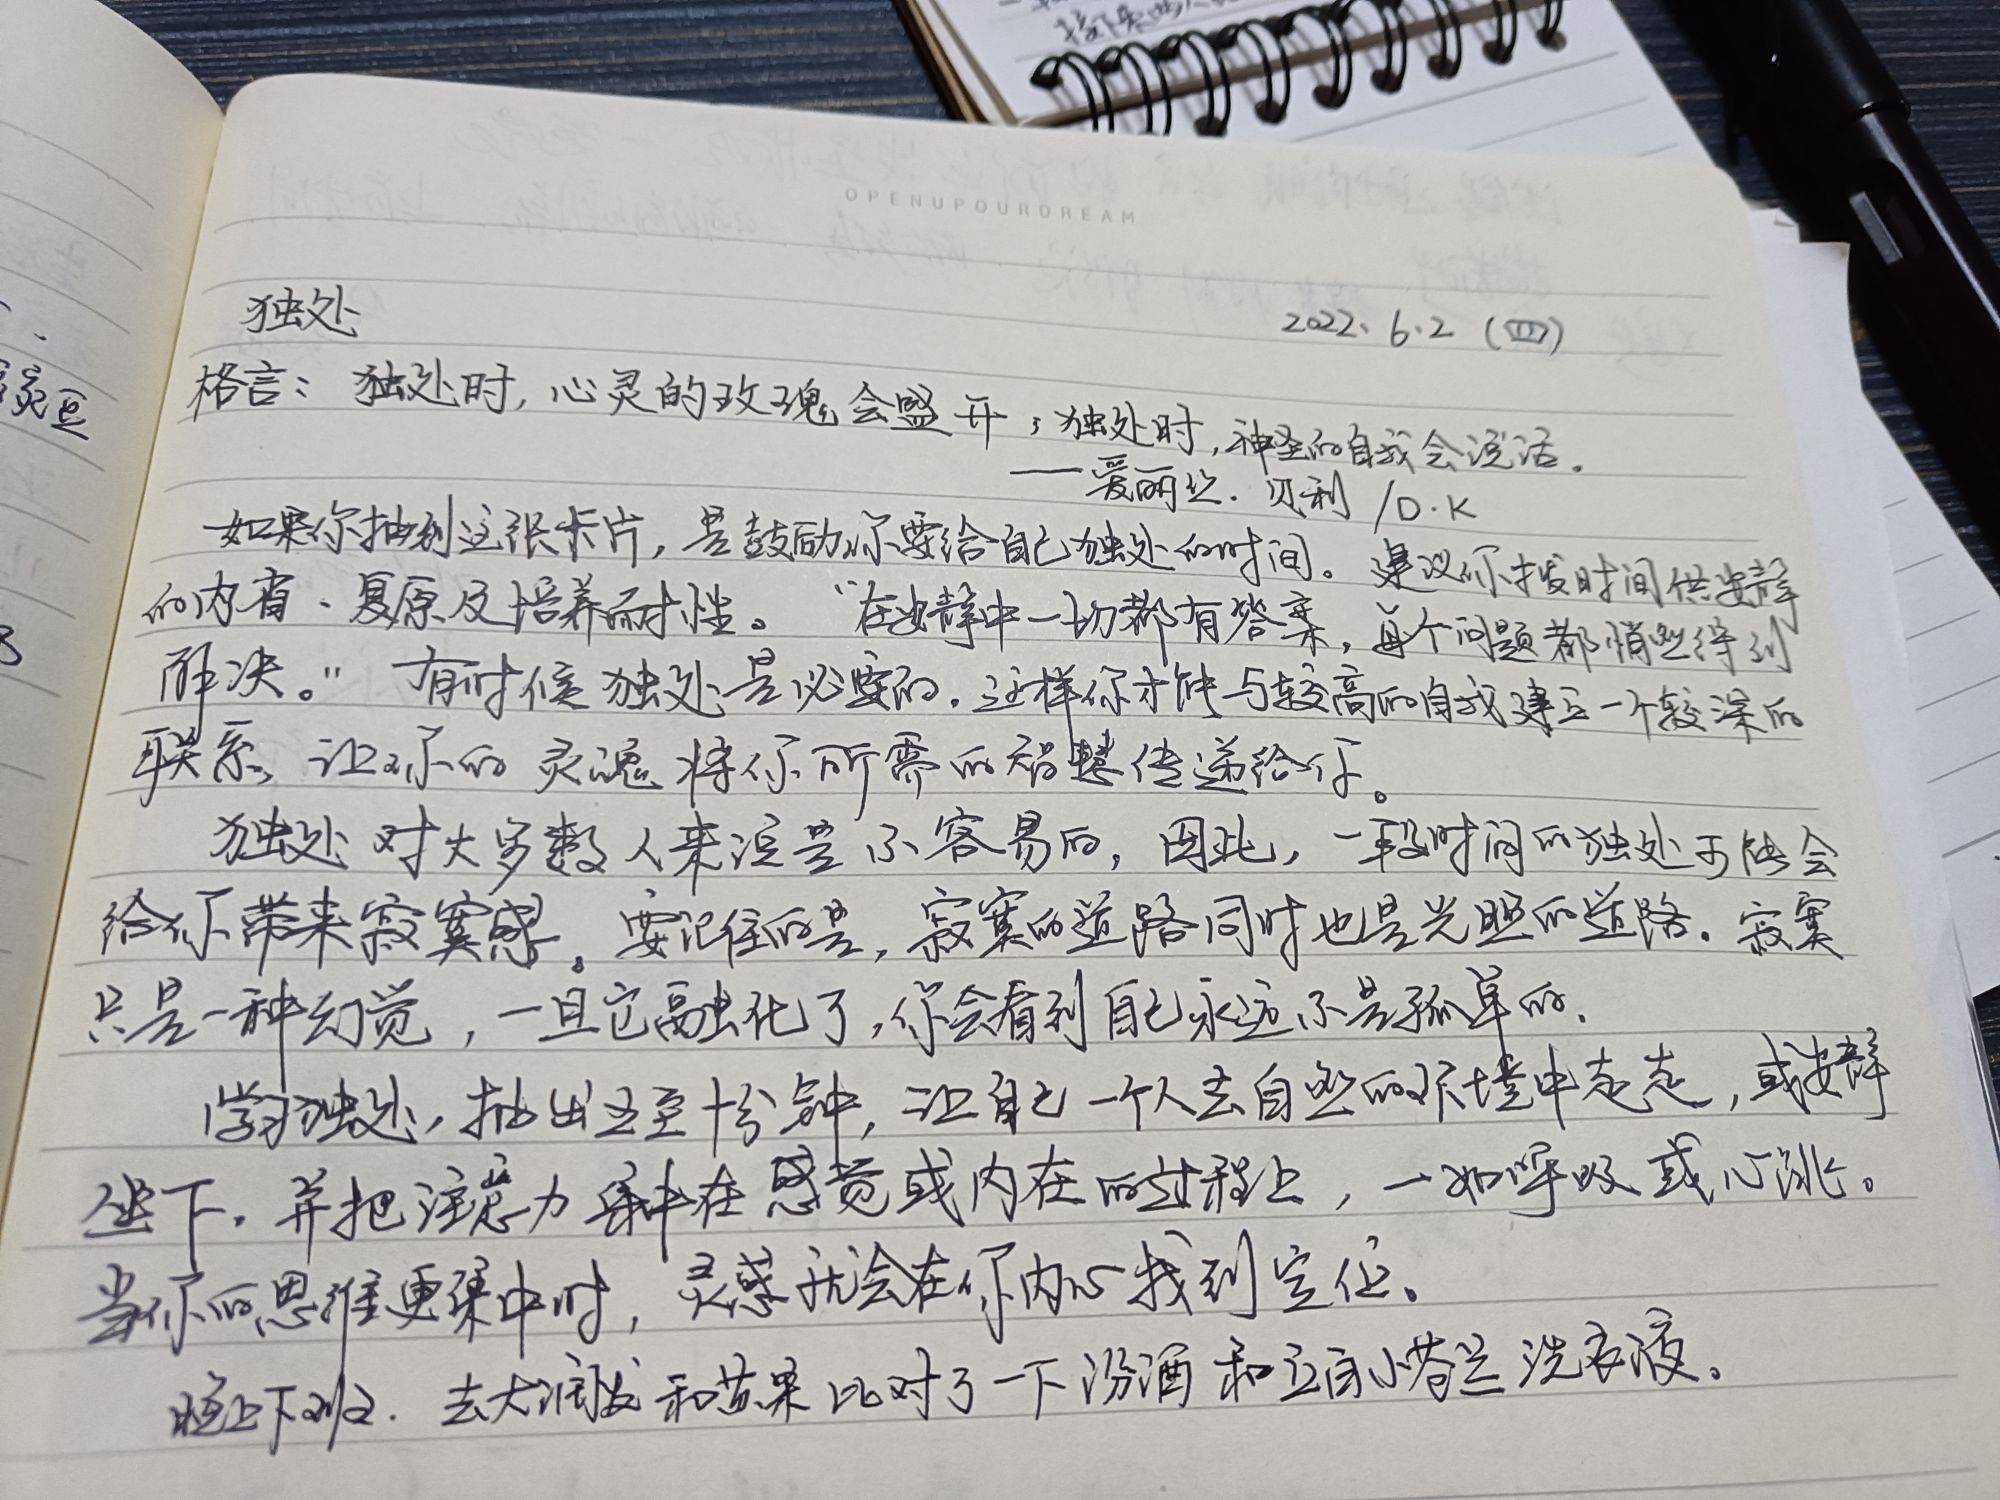 接下来
OPENUPOURDREAM
独处
2022.6.2 (四)
格言：独处时，心灵的玫瑰会盛开；独处时，神圣的自我会说话。
——爱丽丝．贝利 /D.K
如果你抽到这张卡片，是鼓励你要给自己独处的时间。建议你拨时间供安静
的内省、复原及培养耐性。“在安静中一切都有答案，每个问题都悄然得到
解决。”有时候独处是必要的．这样你才能与较高的自我建立一个较深的
联系，让你的灵魂将你所需的智慧传递给你。
独处对大多数人来说是不容易的，因此，一段时间的独处可能会
给你带来寂寞感。要记住的是，寂寞的道路同时也是光明的道路．寂寞
只是一种幻觉，一旦它融化了，你会看到自己永远不是孤单的．
学习独处，抽出五至十分钟，让自己一个人去自然的环境中走走，或安静
坐下．并把注意力集中在感觉或内在的过程上，一如呼吸或心跳。
当你的思维更集中时，灵感就会在你内心找到定位。
晚上下班．去大润发和苏果比对了一下汾酒和立白小苍兰洗衣液。